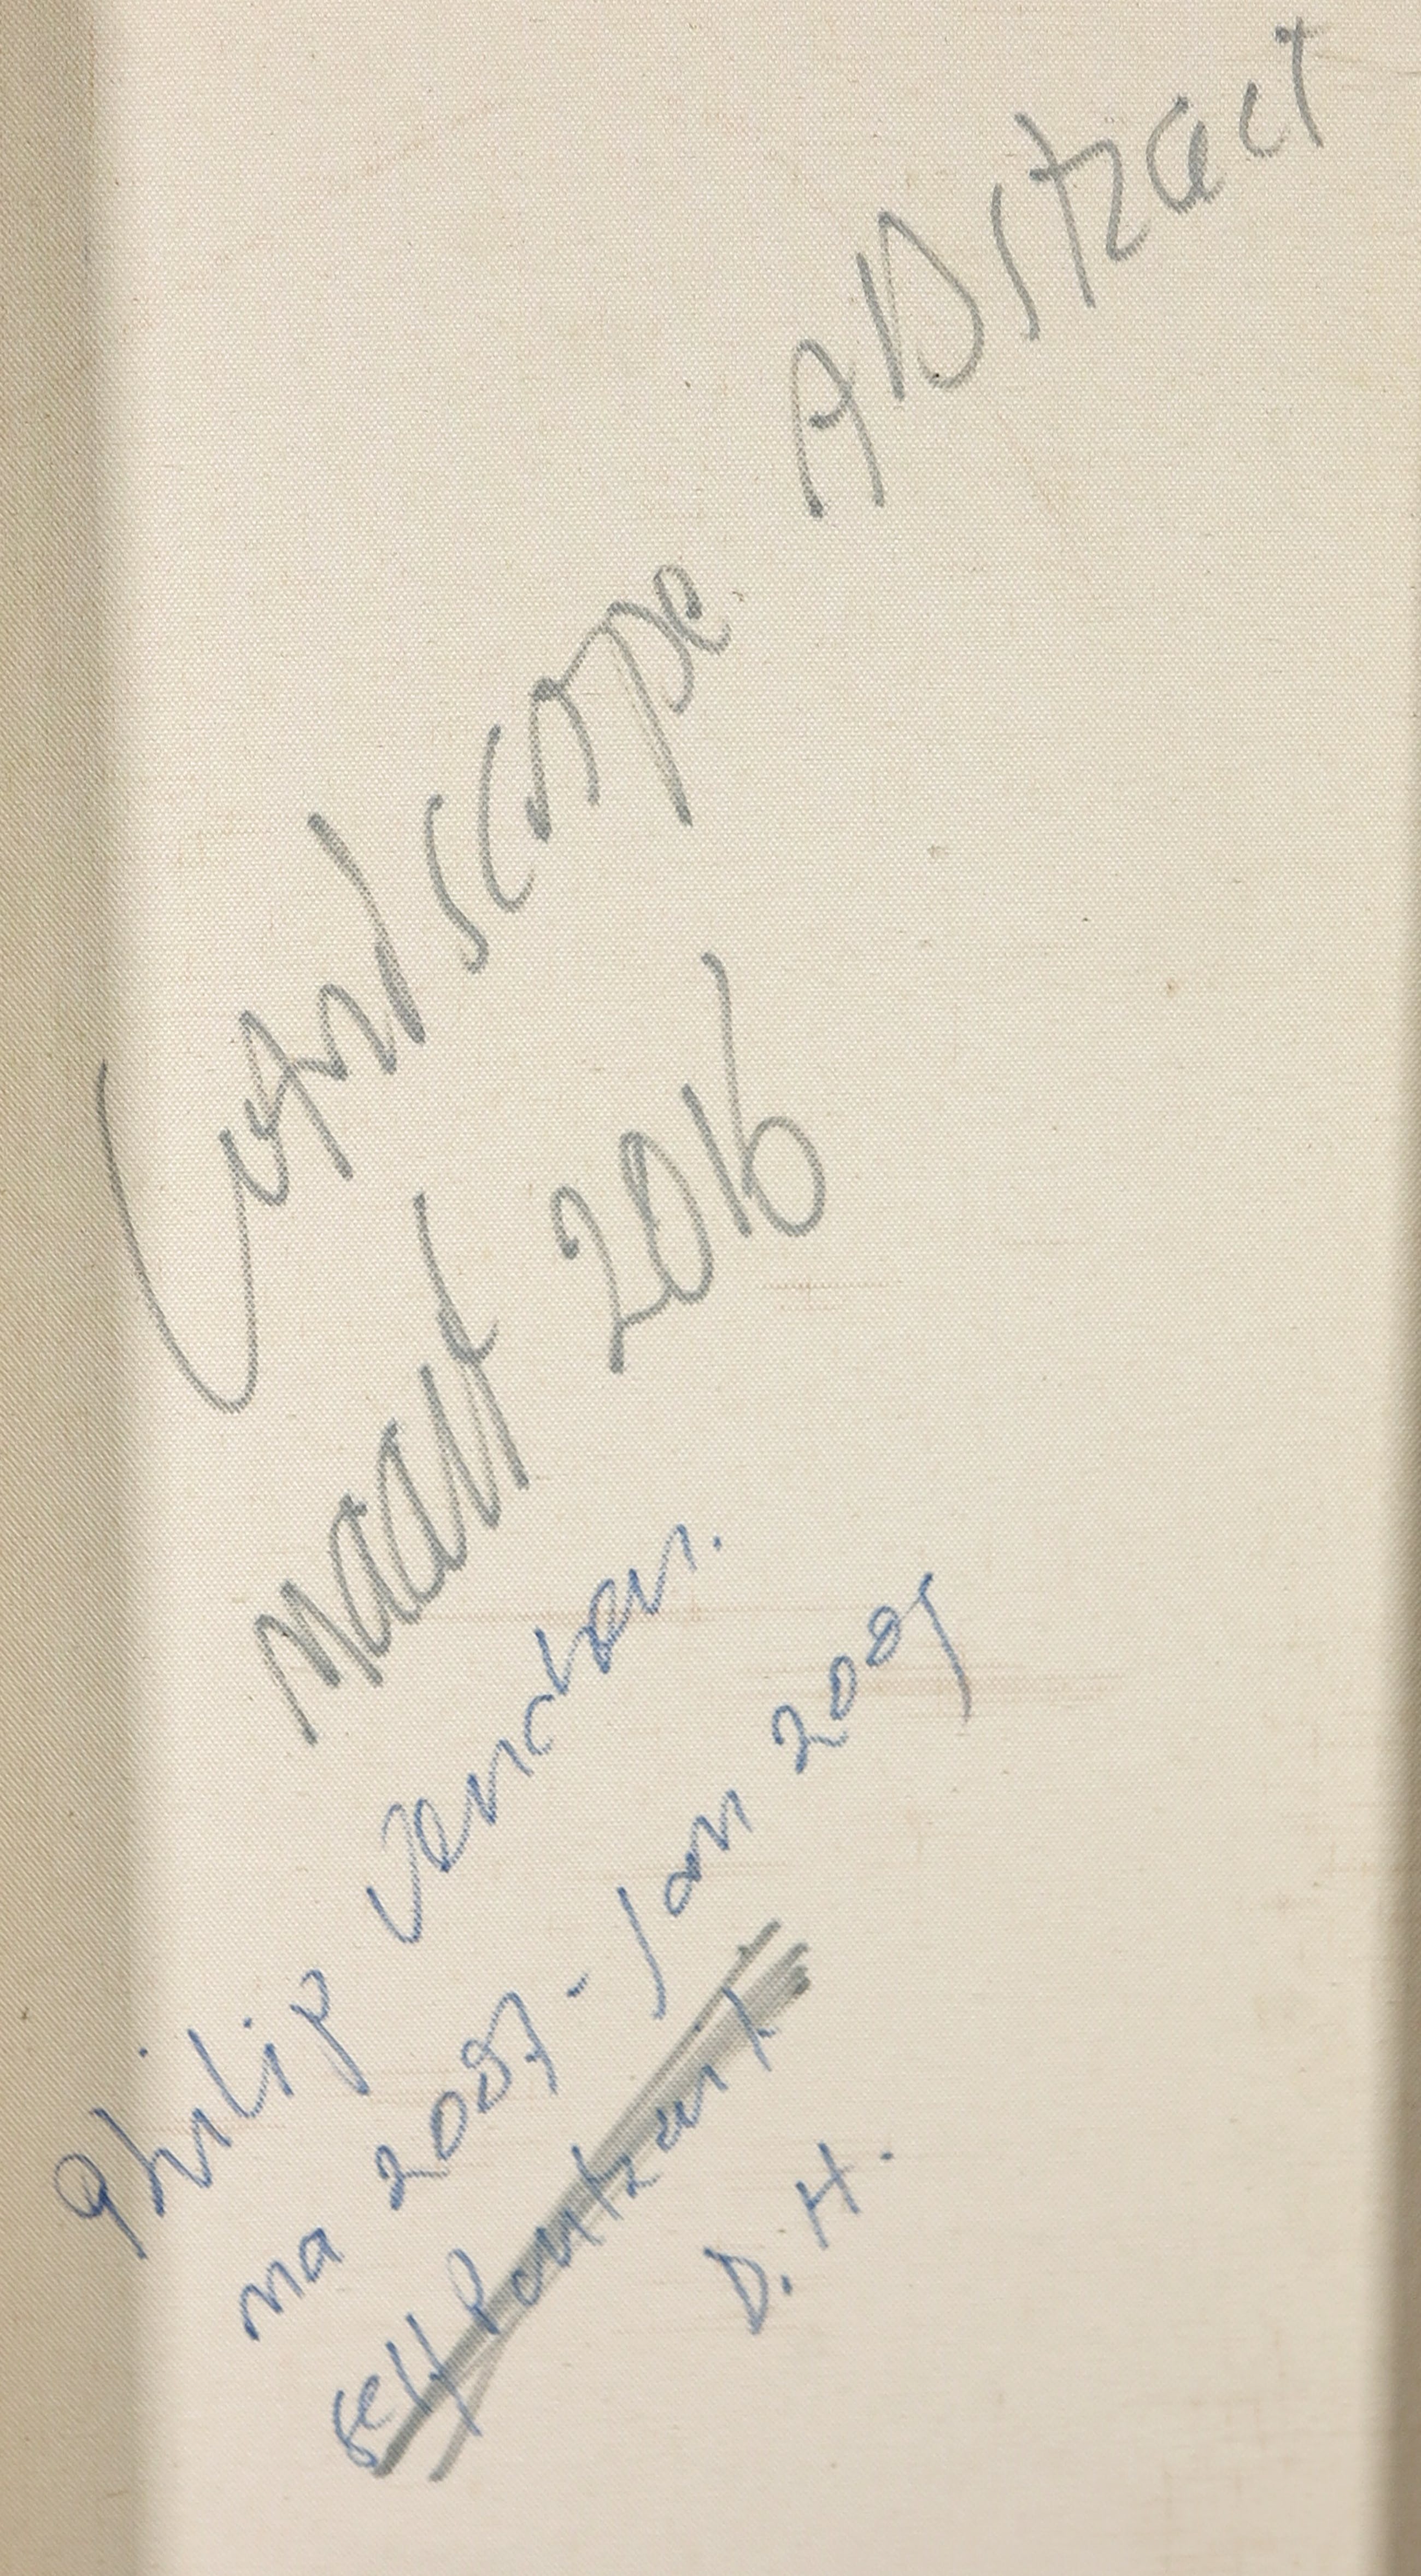 Landscape Abstract
Maart 2016
Philip Vencken.
na 2007 - Jan 2009
self Portrait
D. H.